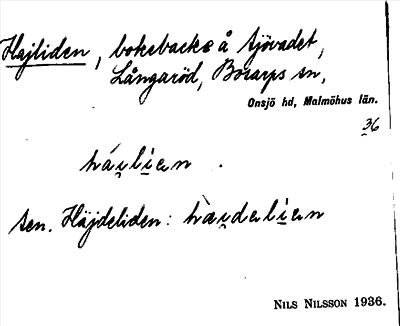 Hajliden, bokebacke å Sjövadet,
Långaröd, Bosarps sn,
Onsjö hd, Malmöhus län.
36
háįli̱ɛn .
sen. Häjdeliden: hὰįdɛli̱ɛn
NILS NILSSON 1936.